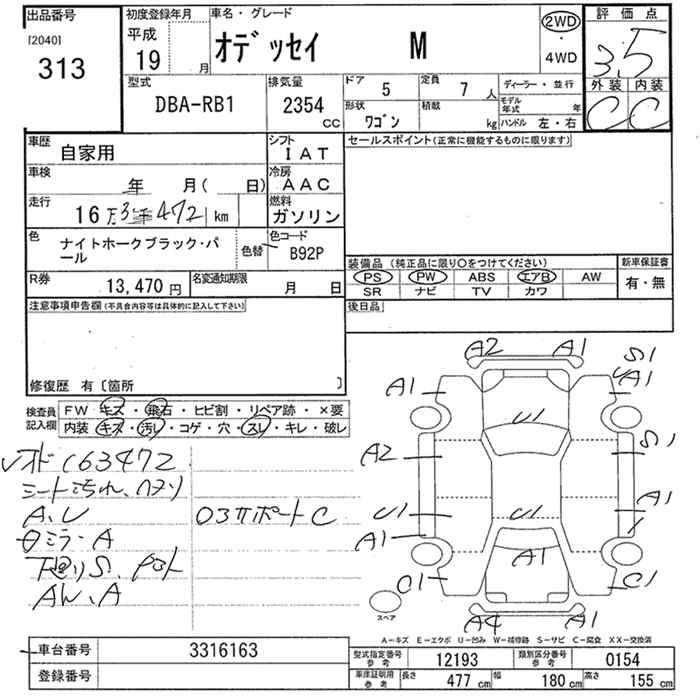 出品番号
[2040]
313
初度登録年月
平成
19 月
車名・グレード
オデッセイ M
2WD
・
4WD
評価点
3.5
外装 内装
C C
型式
DBA-RB1
排気量
2354
CC
ドア 5
定員 7 人
ディーラー・並行
形状 ワゴン
積載 kg
モデル年式 年
ハンドル 左・右
車歴
自家用
シフト
IAT
車検
年 月( 日)
冷房
AAC
走行
16万3千472 km
燃料
ガソリン
色
ナイトホークブラック・パール
色替
色コード
B92P
R券
13,470 円
名変通知期限
月 日
注意事項申告欄(不具合内容等は具体的に記入して下さい)
修復歴 有〔箇所 〕
セールスポイント(正常に機能するものに限ります)
装備品(純正品に限り○をつけてください)
PS PW ABS エアB AW
SR ナビ TV カワ
新車保証書
有・無
後日品
検査員
記入欄
FW キズ・飛石・ヒビ割・リペア跡・×要
内装 キズ・汚レ・コゲ・穴・スレ・キレ・破レ
163472
シート汚れ、ハナソ
A、U
ミラーA
下廻りS、
AW、A
サポートC
A2 A1
S1
A1 A1
U1
A2 S1
U1 U1 A1
A1
A1
C1 C1
A4 A1
スペア
A-キズ E-エクボ U-凹み W-補修跡 S-サビ C-腐食 XX-交換済
車台番号
3316163
登録番号
型式指定番号
参考
12193
類別区分番号
参考
0154
車庫証明用
参考
長さ 477 cm
幅 180 cm
高さ 155 cm